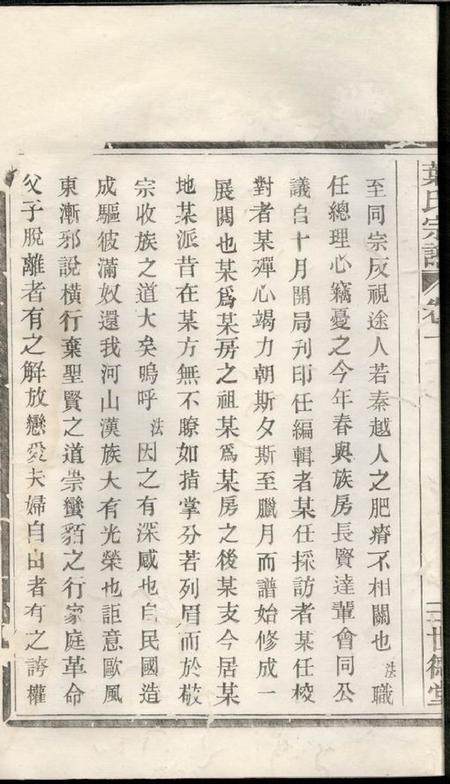 葉氏宗譜 卷一 三世德堂
至同宗反視途人若秦越人之肥瘠不相關也 法職
任總理心竊憂之今年春與族房長賢達輩會同公
議自十月開局刊印任編輯者某任採訪者某任校
對者某殫心竭力朝斯夕斯至臘月而譜始修成一
展閱也某爲某房之祖某爲某房之後某支今居某
地某派昔在某方無不瞭如指掌分若列眉而於敬
宗收族之道大矣嗚呼 法因之有深感也自民國造
成驅彼滿奴還我河山漢族大有光榮也詎意歐風
東漸邪說橫行棄聖賢之道崇蠻貊之行家庭革命
父子脫離者有之解放戀愛夫婦自由者有之誇權